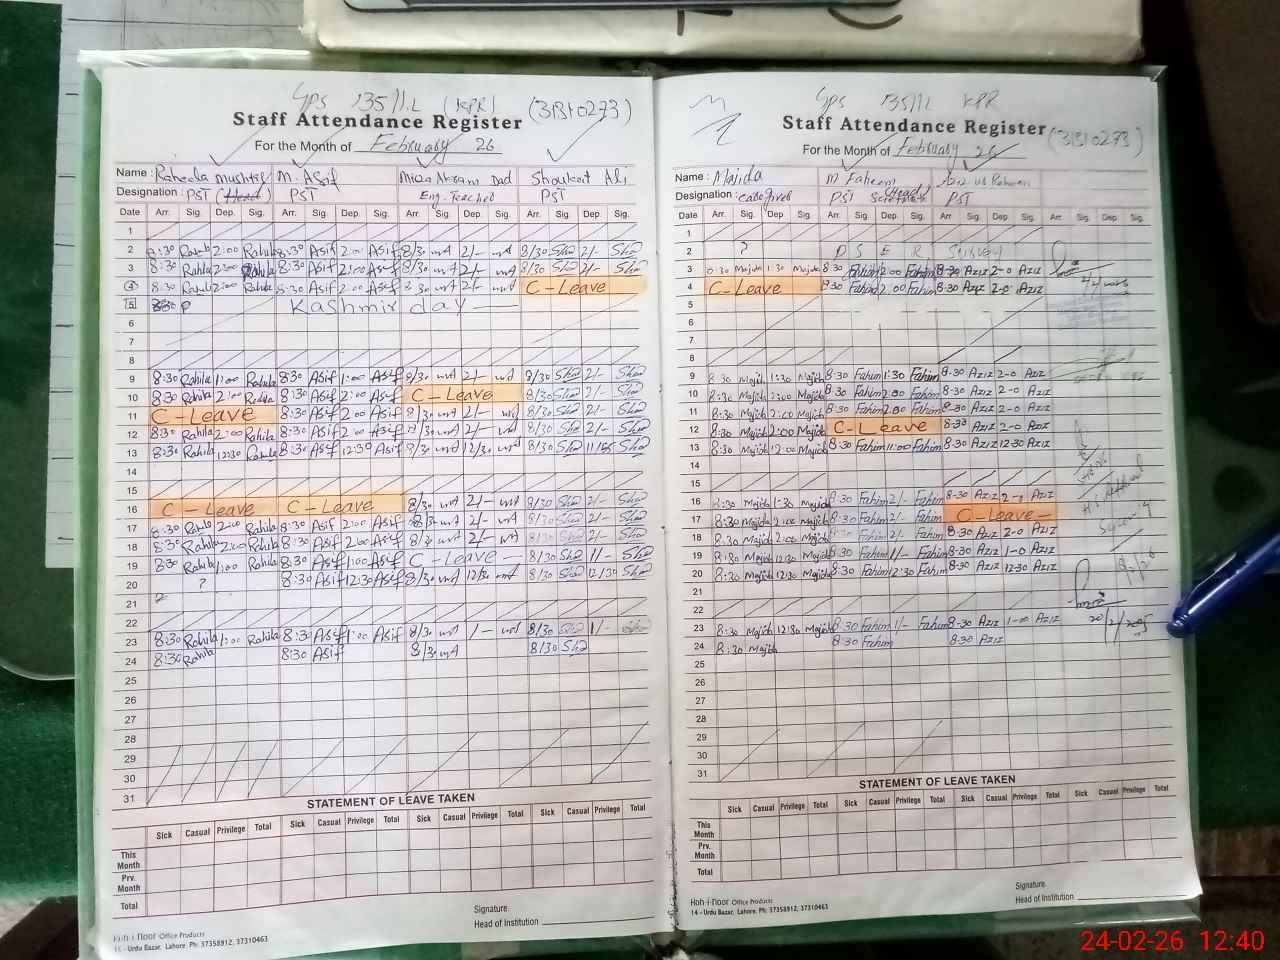 GPS 135/1.L (KPR) (31310273)
Staff Attendance Register
For the Month of February 26
Name: Raheela Mushtaq M. Asif Mirza Akram Dad Shoukat Ali
Designation: PST (Head) PST Eng. Teacher PST
Date Arr. Sig. Dep. Sig. Arr. Sig. Dep. Sig. Arr. Sig. Dep. Sig. Arr. Sig. Dep. Sig.
1
2 8:30 2:00 Rahila 8:30 Asif 2:00 Asif 8/30 2/- 8/30 Sha 2/- Sha
3 8:30 Rahila 2:00 Rahila 8:30 Asif 2:00 Asif 8/30 2/- 8/30 Sha 2/- Sha
4 8:30 Rahila 2:00 Rahila 8:30 Asif 2:00 Asif 8/30 2/- C-Leave
5 Kashmir day
6
7
8
9 8:30 Rahila 1:00 Rahila 8:30 Asif 1:00 Asif 8/30 2/- 8/30 Sha 2/- Sha
10 8:30 Rahila 2:00 Rahila 8:30 Asif 2:00 Asif C-Leave 8/30 Sha 2/- Sha
11 C-Leave 8:30 Asif 2:00 Asif 8/30 2/- 8/30 Sha 2/- Sha
12 8:30 Rahila 2:00 Rahila 8:30 Asif 2:00 Asif 2/- 8/30 Sha 2/- Sha
13 8:30 Rahila 12:30 Rahila 8:30 Asif 12:30 Asif 8/30 12/30 8/30 Sha Sha
14
15
16 C-Leave C-Leave 8/30 2/- 8/30 Sha 2/- Sha
17 8:30 Rahila 2:00 Rahila 8:30 Asif 2:00 Asif 8/30 2/- 8/30 Sha 2/- Sha
18 8:30 Rahila 2:00 Rahila 8:30 Asif 2:00 Asif 8/30 2/- 8/30 Sha 2/- Sha
19 8:30 Rahila 1:00 Rahila 8:30 Asif 1:00 Asif C-Leave 8/30 Sha 1/- Sha
20 ? 8:30 Asif 12:30 Asif 8/30 12/30 8/30 Sha 12/30 Sha
21
22
23 8:30 Rahila 1:00 Rahila 8:30 Asif 1:00 Asif 8/30 1/- 8/30 Sha 1/-
24 8:30 Rahila 8:30 Asif 8/30 8/30 Sha
25
26
27
28
29
30
31
STATEMENT OF LEAVE TAKEN
Sick Casual Privilege Total Sick Casual Privilege Total Sick Casual Privilege Total Sick Casual Privilege Total
This Month
Prv. Month
Total
Signature
Head of Institution
Hoh-i-Noor Office Products
14 - Urdu Bazar, Lahore. Ph: 37358912, 37310463
GPS 135/1L KPR
Staff Attendance Register (31310273)
For the Month of February 26
Name: Majida M Faheem Aziz ur Rehman
Designation: PST (Head) PST
Date Arr. Sig. Dep. Sig. Arr. Sig. Dep. Sig. Arr. Sig. Dep. Sig. Arr. Sig. Dep. Sig.
1
2 ? D S E R Survey
3 Majida 1:30 Majida 8:30 Fahim 2:00 Fahim 8:30 Aziz 2-0 Aziz
4 C-Leave 8:30 Fahim 2:00 Fahim 8:30 Aziz 2-0 Aziz
5
6
7
8
9 8:30 Majida 1:30 Majida 8:30 Fahim 1:30 Fahim 8:30 Aziz 2-0 Aziz
10 8:30 Majida 2:00 Majida 8:30 Fahim 2:00 Fahim 8:30 Aziz 2-0 Aziz
11 8:30 Majida 2:00 Majida 8:30 Fahim 2:00 Fahim 8:30 Aziz 2-0 Aziz
12 8:30 Majida 2:00 Majida C-Leave 8:30 Aziz 2-0 Aziz
13 8:30 Majida 12:00 Majida 8:30 Fahim 11:00 Fahim 8:30 Aziz 12-30 Aziz
14
15
16 8:30 Majida 1:30 Majida 8:30 Fahim 2/- Fahim 8-30 Aziz 2-0 Aziz
17 8:30 Majida 2:00 Majida 8:30 Fahim 2/- Fahim C-Leave
18 8:30 Majida 2:00 Majida 8:30 Fahim 2/- Fahim 8:30 Aziz 2-0 Aziz
19 8:30 Majida 12:30 Majida 8:30 Fahim 1/- Fahim 8-30 Aziz 1-0 Aziz
20 8:30 Majida 12:30 Majida 8:30 Fahim 12:30 Fahim 8:30 Aziz 12-30 Aziz
21
22
23 8:30 Majida 12:30 Majida 8:30 Fahim 1/- Fahim 8-30 Aziz 1-00 Aziz
24 8:30 Majida 8:30 Fahim 8:30 Aziz
25
26
27
28
29
30
31
STATEMENT OF LEAVE TAKEN
Sick Casual Privilege Total Sick Casual Privilege Total Sick Casual Privilege Total Sick Casual Privilege Total
This Month
Prv. Month
Total
Signature
Head of Institution
Hoh-i-Noor Office Products
14 - Urdu Bazar, Lahore. Ph: 37358912, 37310463
24-02-26 12:40